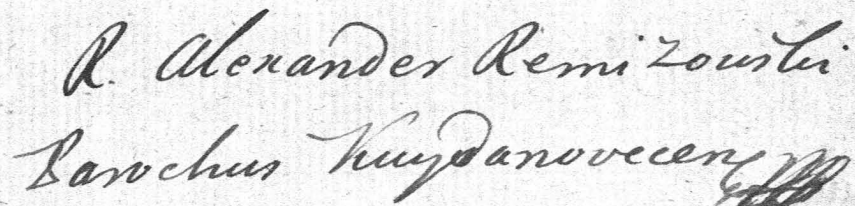 R. Alexander Remizowski
Parochus Kuydanovecen